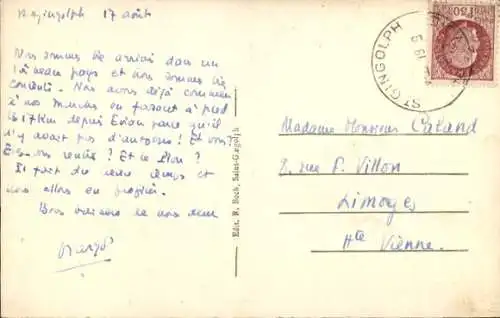 17 août
Nous sommes bien arrivés dans un
beau pays et nous sommes très
contents. Nous avons déjà commencé
à nos en faisant à pied
les 17 km depuis Evian parce qu'il
n'y avait pas d'autocars ! Et vous
Etes-vous rentrés ? Et le
Il fait du beau temps et
nous allons en profiter.
Bons baisers de nous deux
Edit. R. Bock, Saint-Gingolph
ST GINGOLPH
1F50
Madame Monsieur Caland
2, rue F. Villon
Limoges
Hte Vienne.